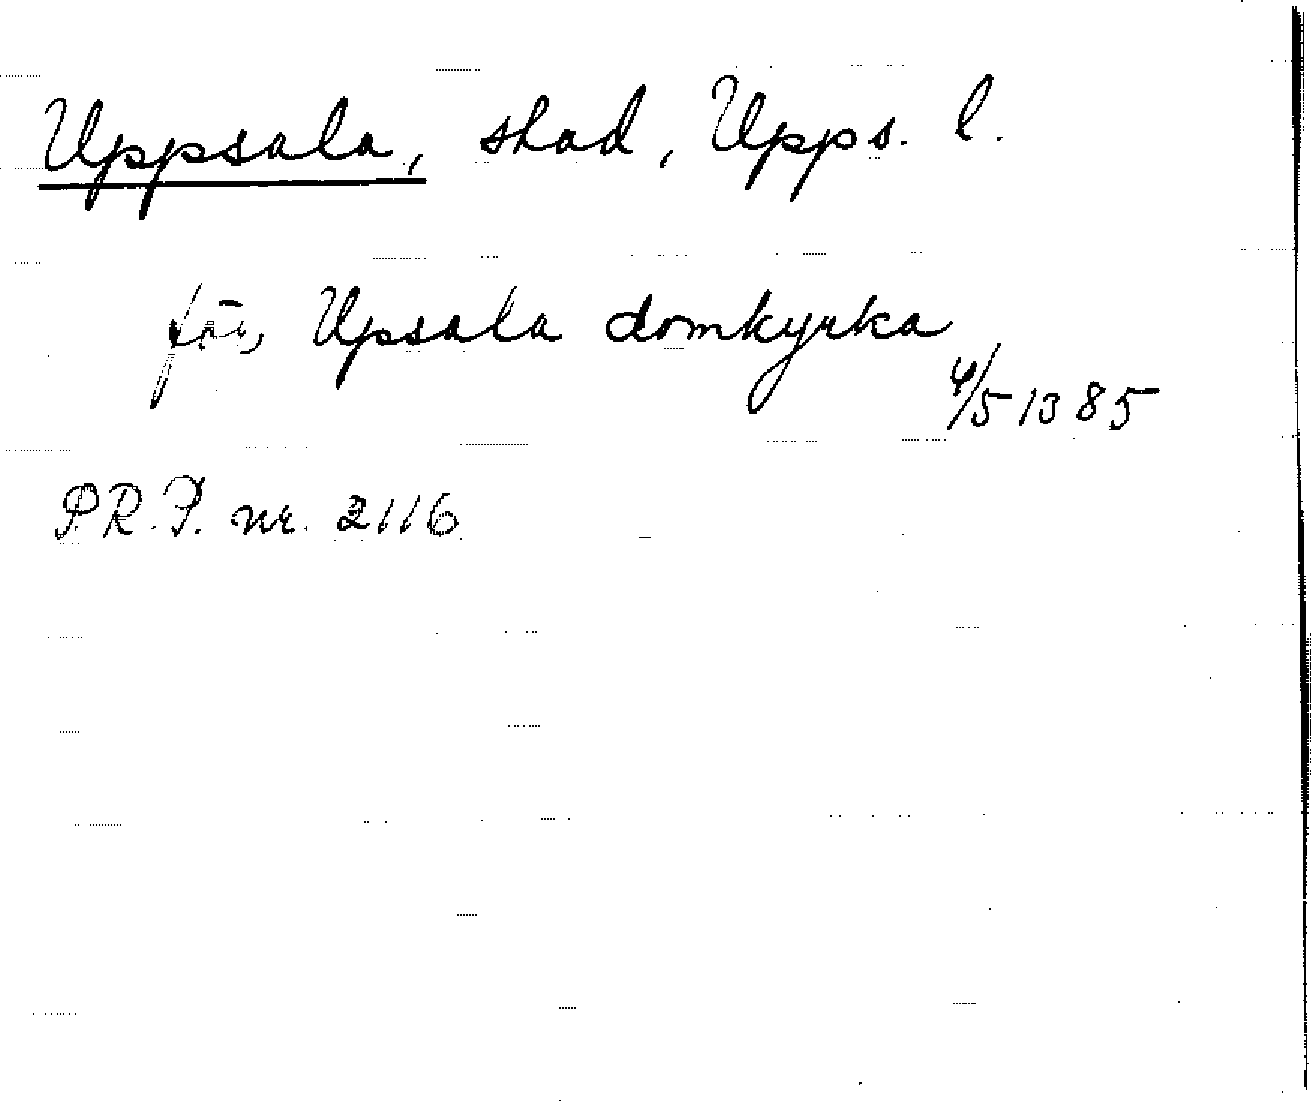 Uppsala, stad, Upps. l.
för, Upsala domkyrka
4/5 1385
P.R.P. nr. 2116